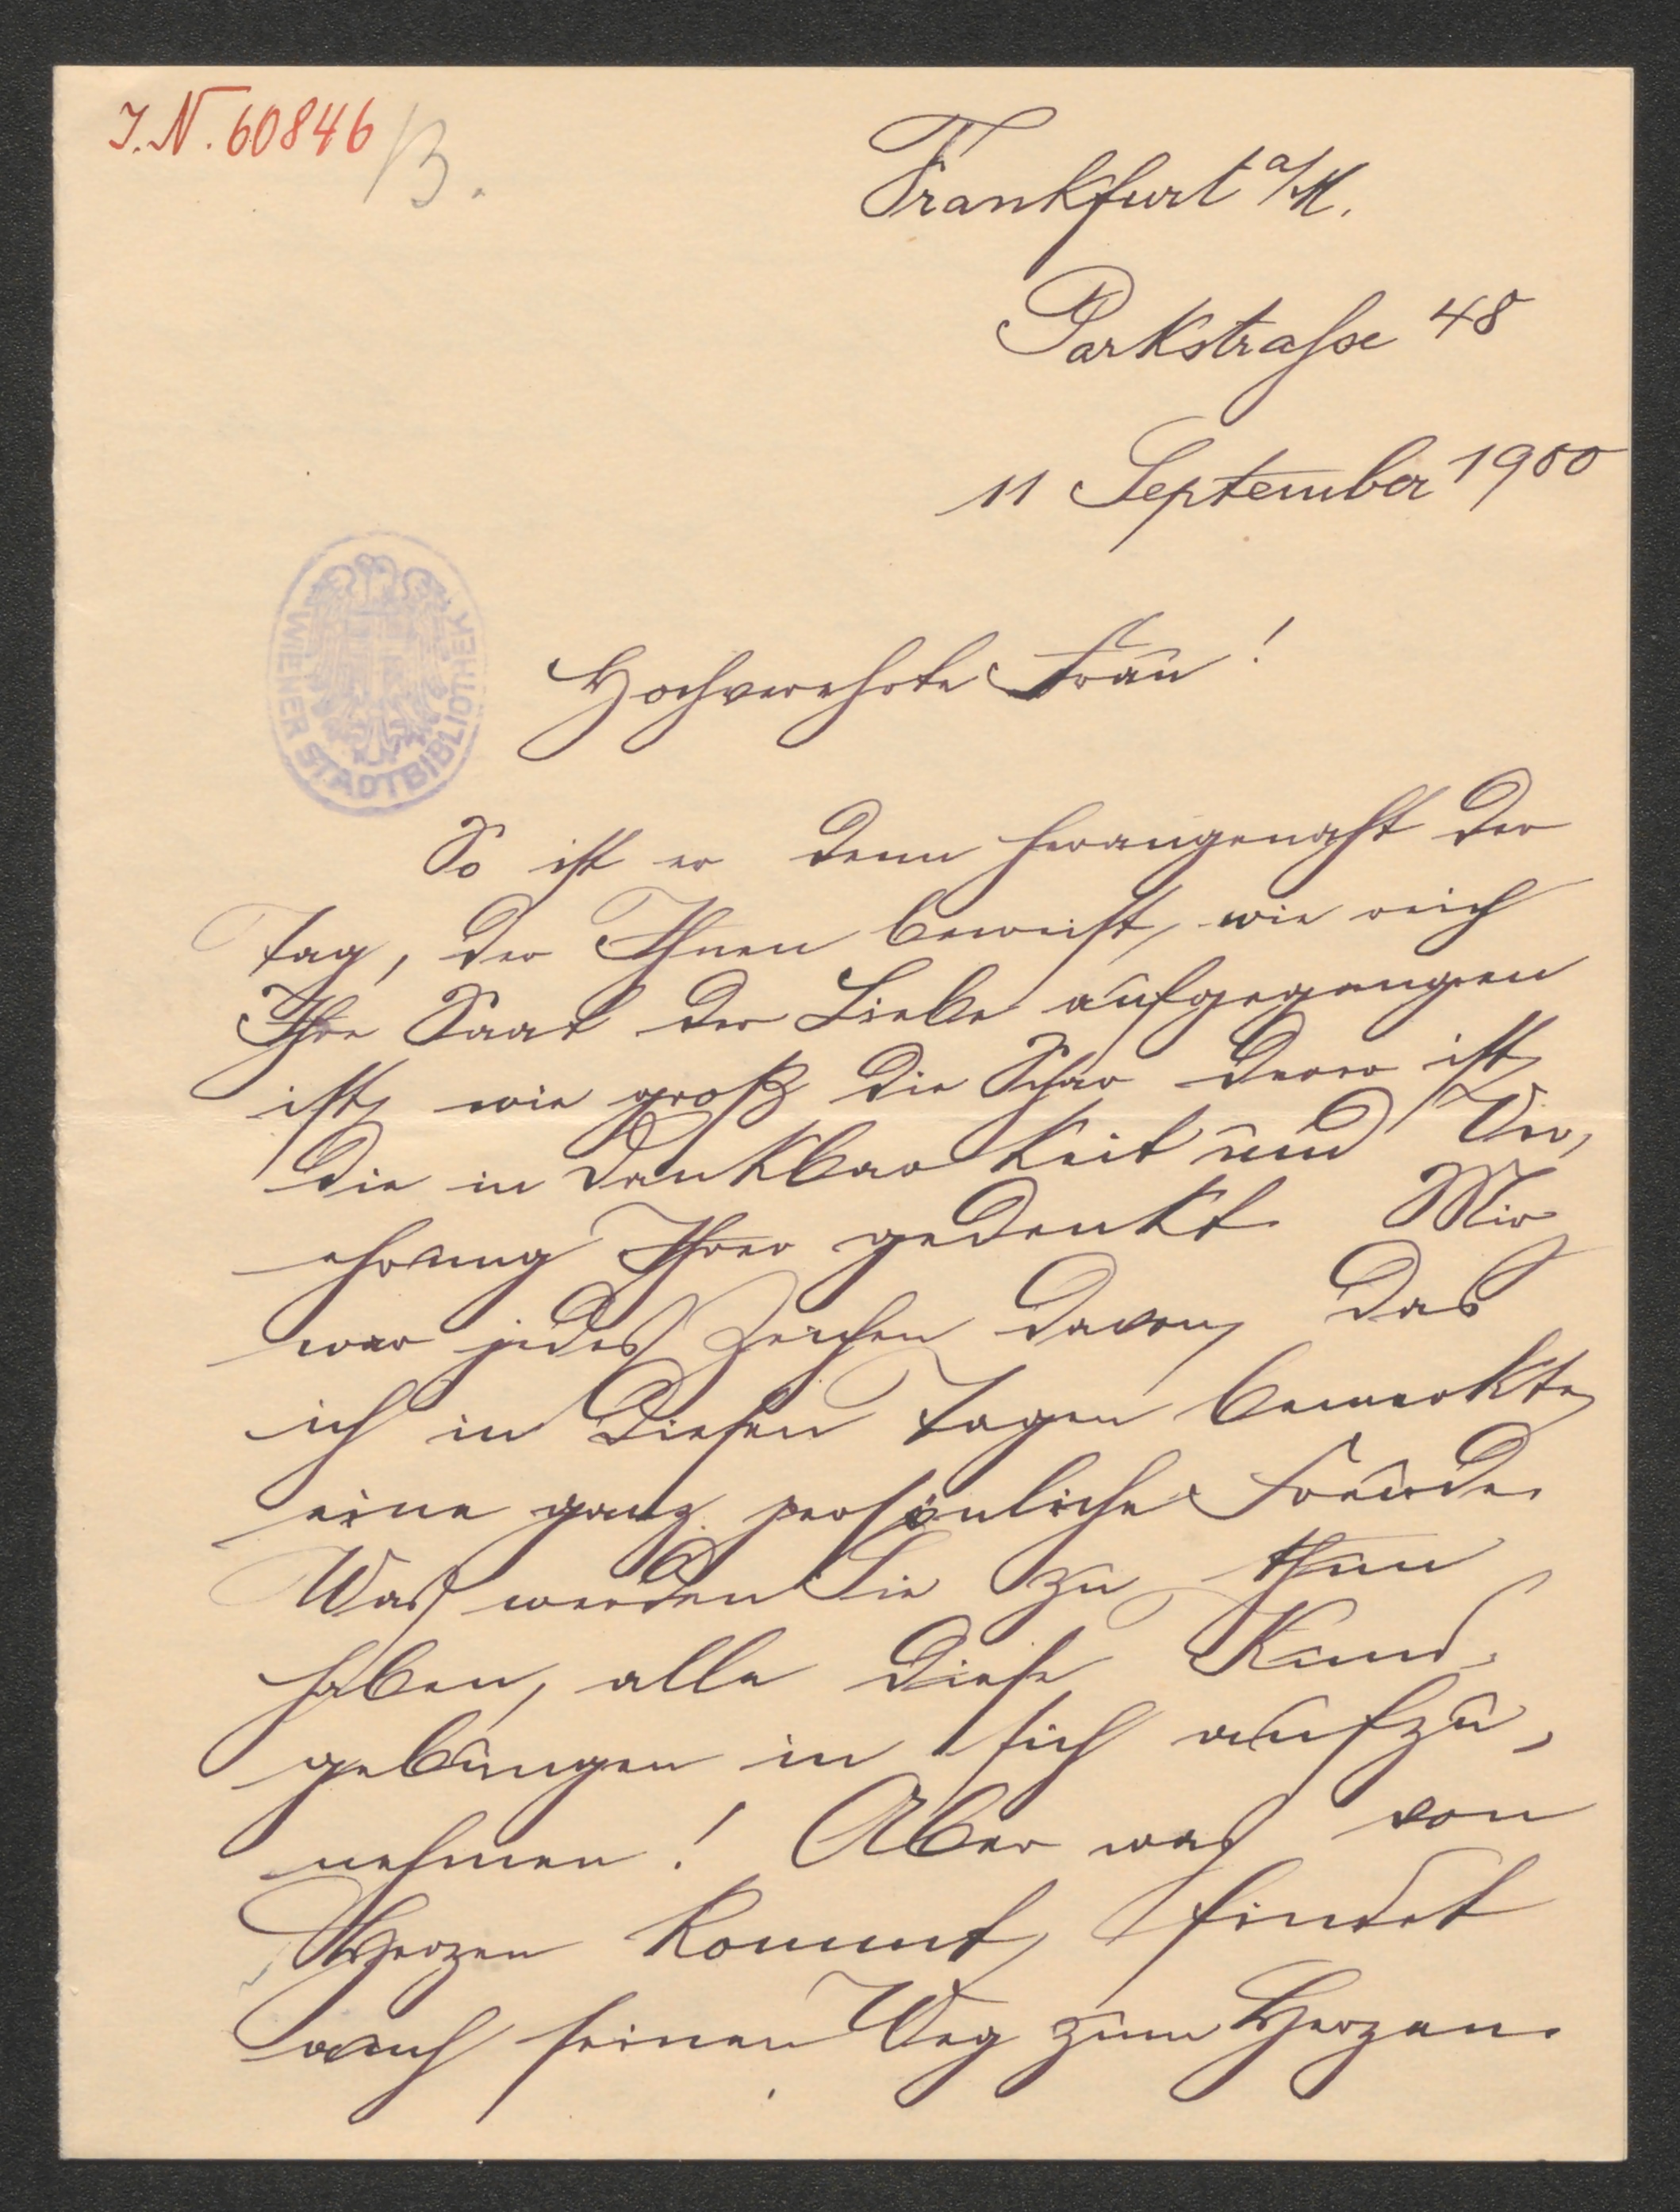 J.N. 60846
/B.
Frankfurt a/M.
Parkstraße 48
11 September 1900
WIENER STADTBIBLIOTHEK
Hochverehrte Frau!
So ist er denn herangenaht der
Tag, der Ihnen beweist, wie reich
Ihre Saat der Liebe aufgegangen
ist, wie groß die Schar derer ist,
die in Dankbarkeit und Ver,
ehrung Ihrer gedenkt. Mir
war jedes Zeichen davon, das
ich in diesen Tagen bemerkte,
eine ganz persönliche Freude.
Was werden Sie zu thun
haben, alle diese Kund,
gebungen in sich aufzu,
nehmen! Aber was von
Herzen kommt, findet
auch seinen Weg zum Herzen.